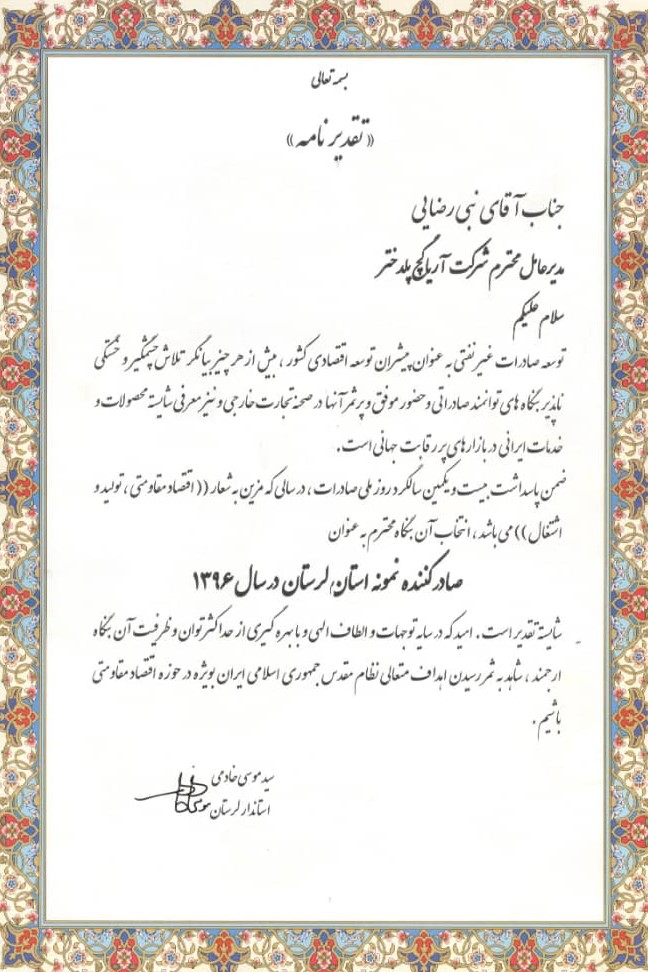 بسمه تعالی
«تقدیر نامه»
جناب آقای نبی رضایی
مدیرعامل محترم شرکت آریا گچ پلدختر
سلام علیکم
توسعه صادرات غیرنفتی به عنوان پیشران توسعه اقتصادی کشور ، بیش از هر چیز بیانگر تلاش چشمگیر و خستگی
ناپذیر بنگاه های توانمند صادراتی و حضور موفق و پرثمر آنها در صحنه تجارت خارجی و نیز معرفی شایسته محصولات و
خدمات ایرانی در بازارهای پر رقابت جهانی است .
ضمن پاسداشت بیست و یکمین سالگرد روز ملی صادرات ، در سالی که مزین به شعار (( اقتصاد مقاومتی ، تولید و
اشتغال )) می باشد ، انتخاب آن بنگاه محترم به عنوان
صادر کننده نمونه استان لرستان در سال ۱۳۹۶
شایسته تقدیر است . امید که در سایه توجهات و الطاف الهی و با بهره گیری از حداکثر توان و ظرفیت آن بنگاه
ارجمند ، شاهد به ثمر رسیدن اهداف متعالی نظام مقدس جمهوری اسلامی ایران بویژه در حوزه اقتصاد مقاومتی
باشیم .
سید موسی خادمی
استاندار لرستان